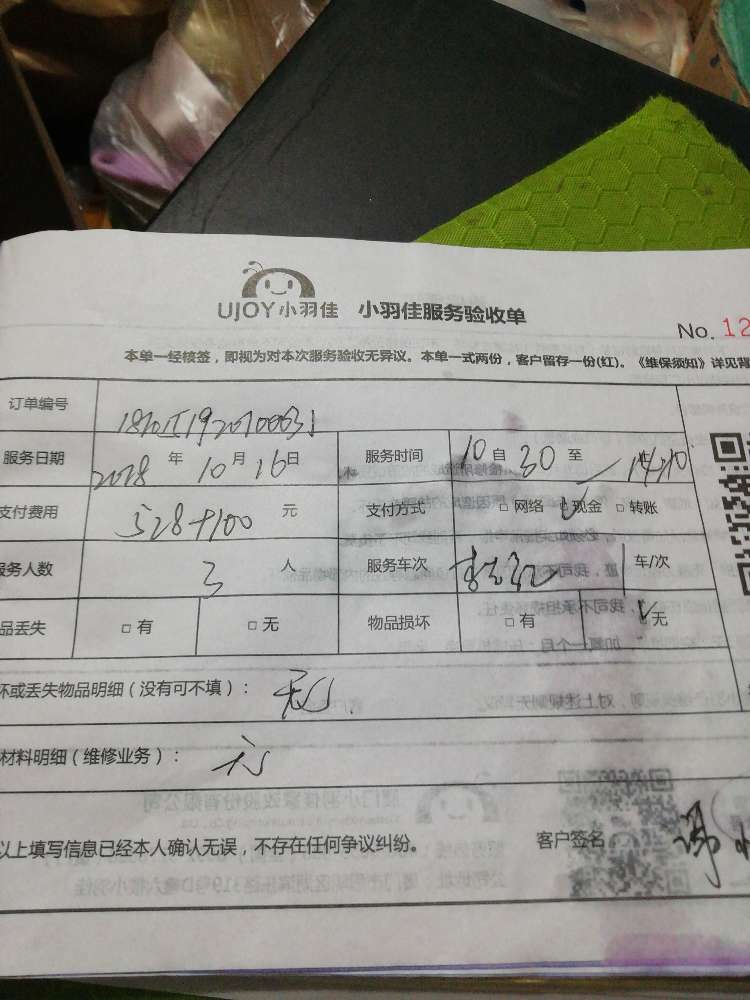 UJOY小羽佳 小羽佳服务验收单
No. 12
本单一经核签，即视为对本次服务验收无异议。本单一式两份，客户留存一份(红)。《维保须知》详见背
订单编号
服务日期 2018 年 10 月 16 日 服务时间 10 自 30 至
支付费用 528+100 元 支付方式 □ 网络 ☑ 现金 □ 转账
服务人数 3 人 服务车次 车/次
品丢失 □ 有 □ 无 物品损坏 □ 有 ☑ 无
坏或丢失物品明细（没有可不填）： 无
材料明细（维修业务）： 无
以上填写信息已经本人确认无误，不存在任何争议纠纷。 客户签名